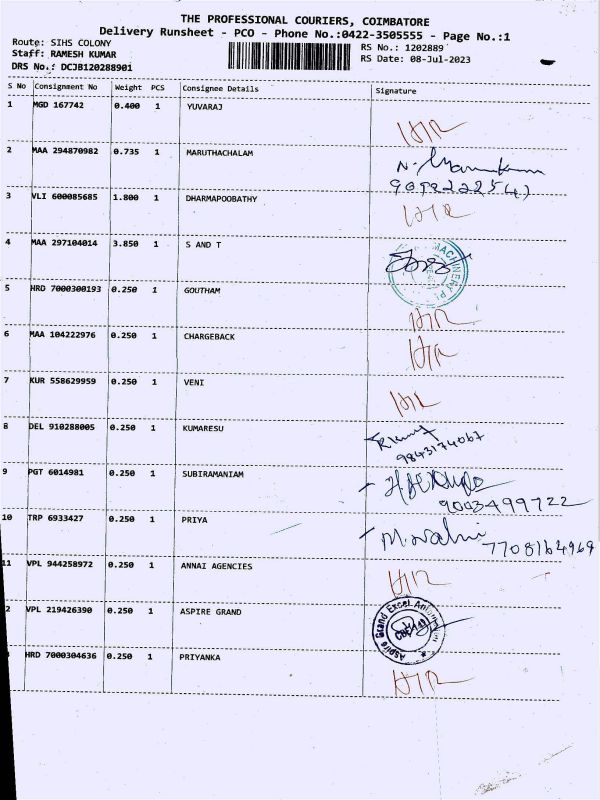 THE PROFESSIONAL COURIERS, COIMBATORE
Delivery Runsheet - PCO - Phone No.:0422-3505555 - Page No.:1
Route: SIHS COLONY
Staff: RAMESH KUMAR
DRS No.: DCJB120288901
RS No.: 1202889
RS Date: 08-Jul-2023
S No Consignment No Weight PCS Consignee Details Signature
1 MGD 167742 0.400 1 YUVARAJ
2 MAA 294870982 0.735 1 MARUTHACHALAM
3 VLI 600085685 1.800 1 DHARMAPOOBATHY
4 MAA 297104014 3.850 1 S AND T
MACHINERY P
5 HRD 7000300193 0.250 1 GOUTHAM
6 MAA 104222976 0.250 1 CHARGEBACK
7 KUR 558629959 0.250 1 VENI
8 DEL 910288005 0.250 1 KUMARESU
9843174067
9 PGT 6014981 0.250 1 SUBIRAMANIAM
9003499722
10 TRP 6933427 0.250 1 PRIYA
7708164969
11 VPL 944258972 0.250 1 ANNAI AGENCIES
2 VPL 219426390 0.250 1 ASPIRE GRAND
Aspire Grand Excel
HRD 7000304636 0.250 1 PRIYANKA